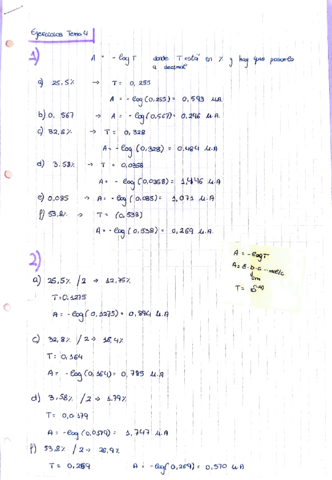 Ejercicios Tema 4
1) A = -log T donde T está en % y hay que pasarlo
a decimal
a) 25.5% → T = 0,255
A = -log(0.255) = 0,593 u.A
b) 0.567 → A = -log(0.567) = 0,246 u.A
c) 32,8% → T = 0,328
A = -log(0.328) = 0,484 u.A
d) 3.58% → T = 0,0358
A = -log(0,0358) = 1,446 u.A
e) 0.085 → A = -log(0,085) = 1,071 u.A
f) 53.8% → T = (0.538)
A = -log(0,538) = 0,269 u.A.
2)
A = -log T
A = ε·b·c
cm
T =
a) 25,5% /2 → 12,75%
T = 0.1275
A = -log(0,1275) = 0,894 u.A
c) 32,8% /2 → 16,4%
T = 0,164
A = -log(0,164) = 0,785 u.A
d) 3.58% /2 → 1.79%
T = 0,0179
A = -log(0,0179) = 1,747 u.A
f) 53.8% /2 → 26,9%
T = 0,269 A = -log(0,269) = 0,570 u.A